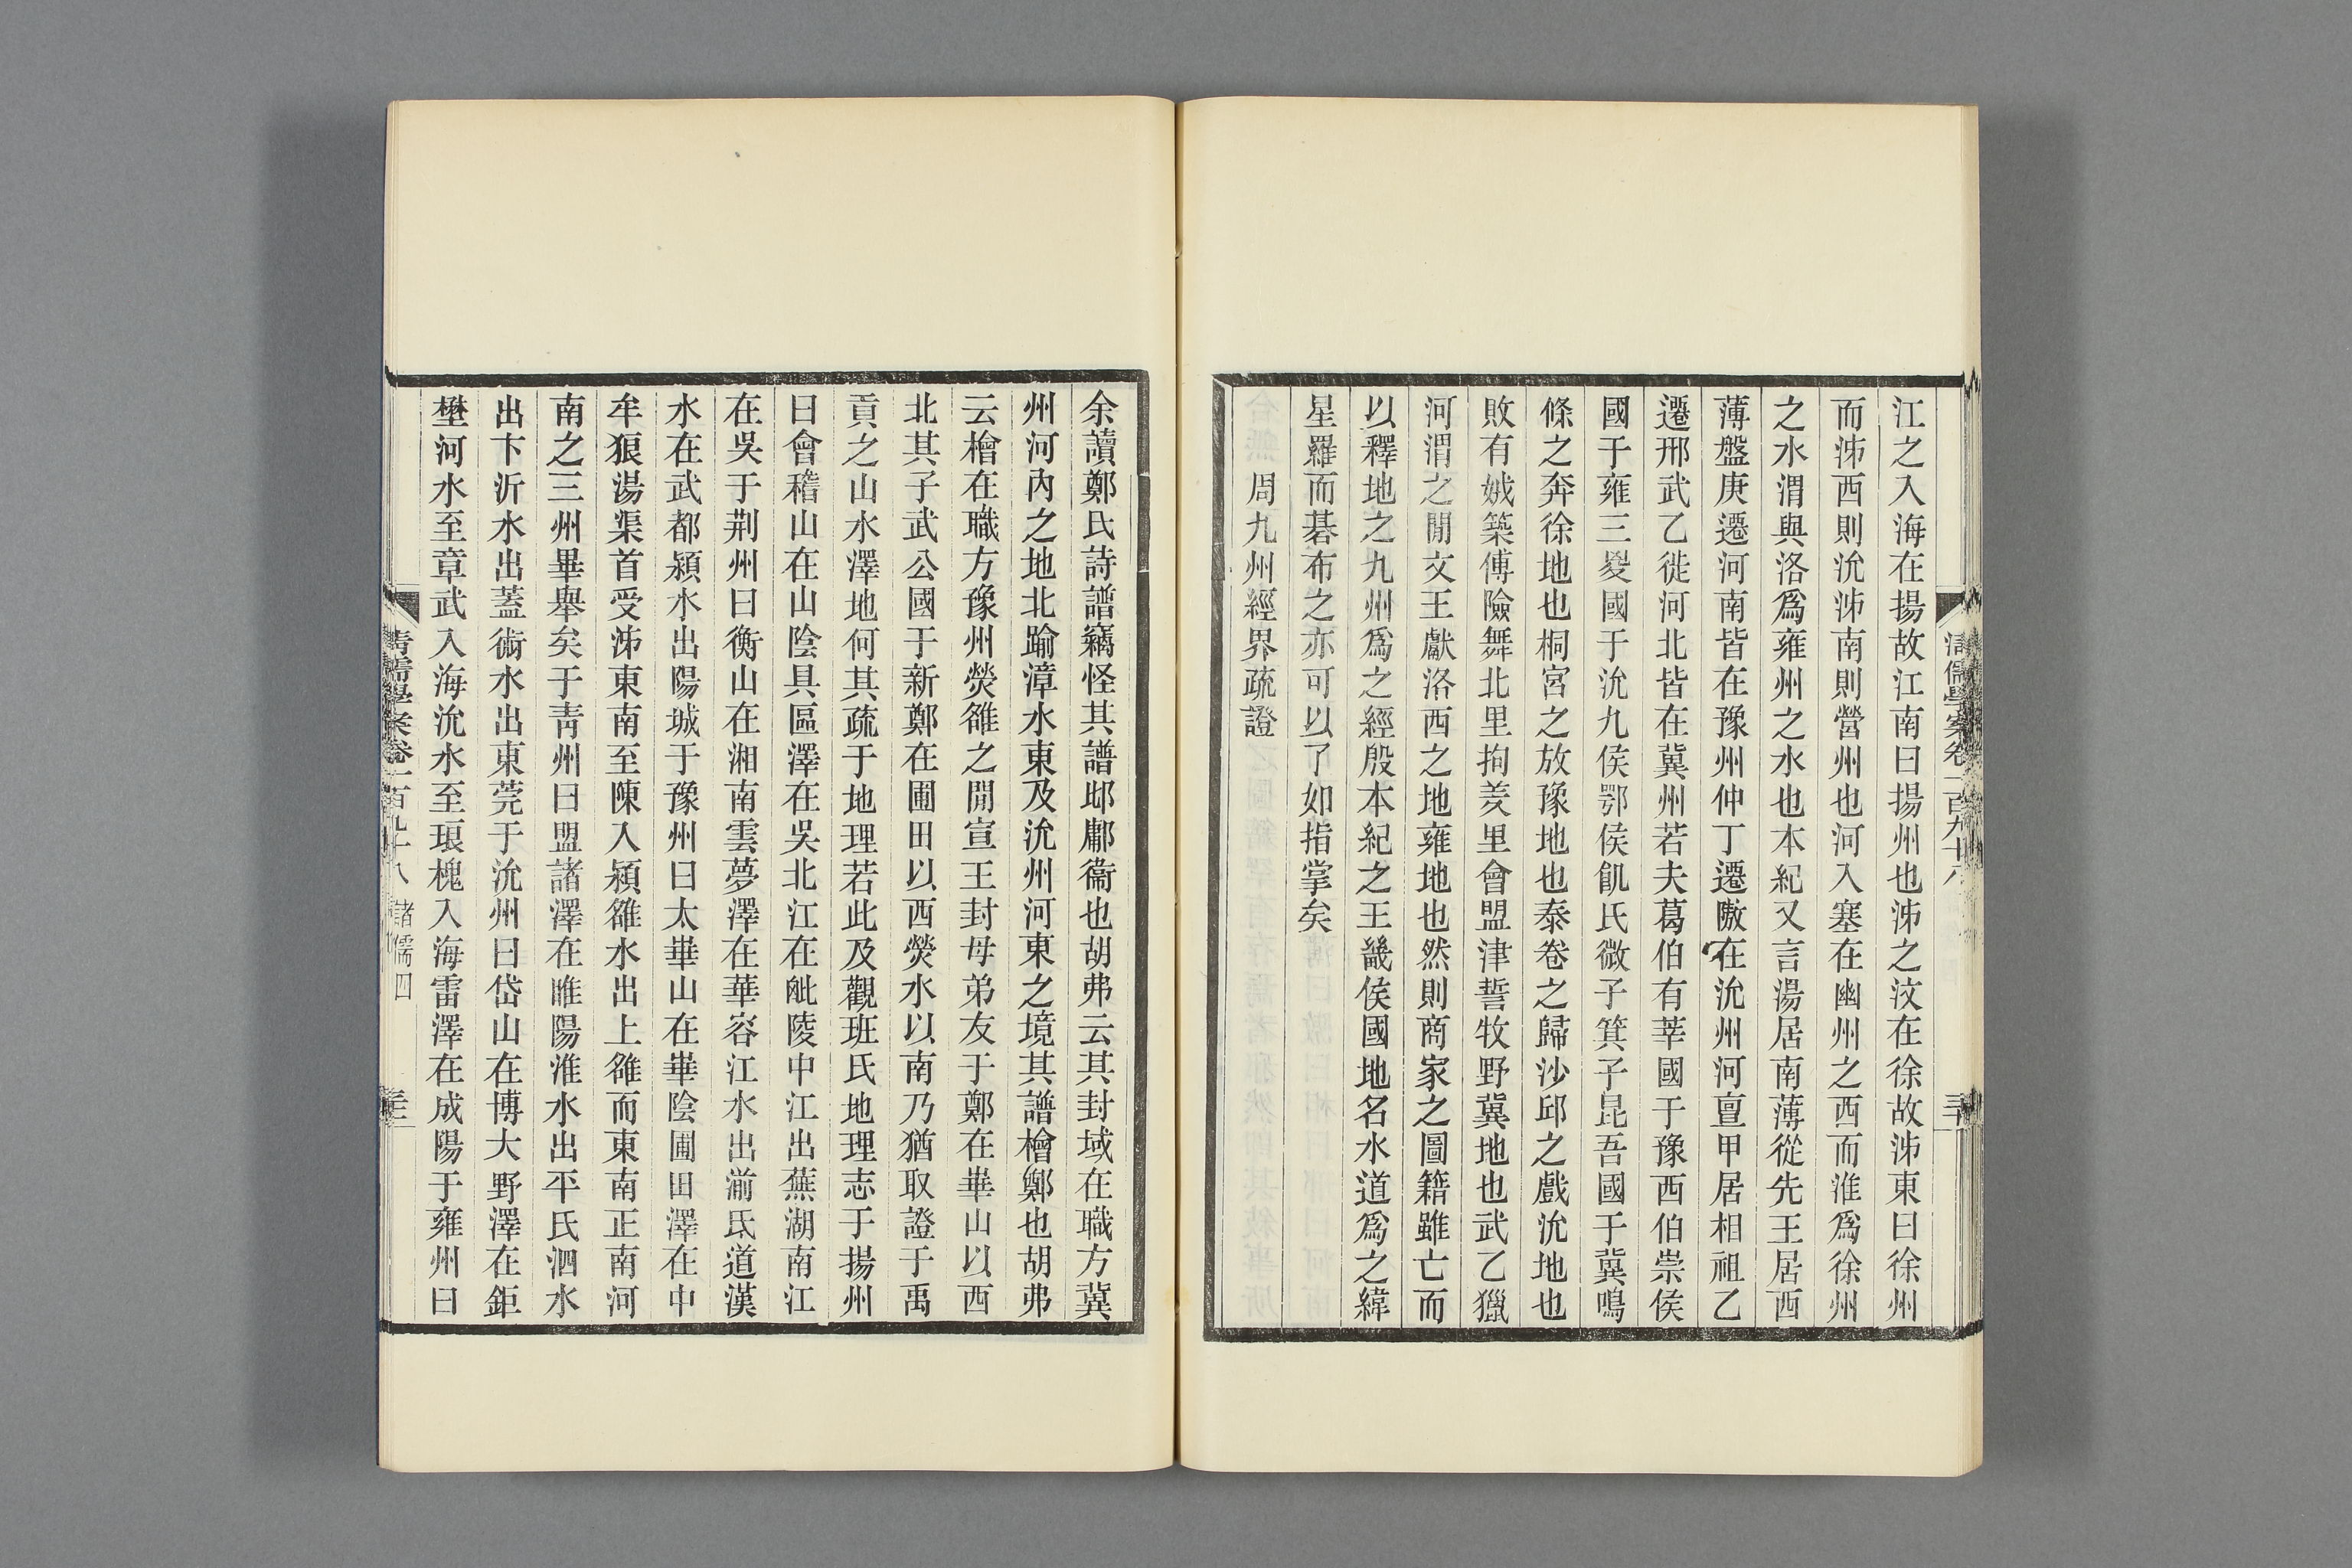 江之入海在揚故江南曰揚州也泲之汶在徐故泲東曰徐州
而泲西則沇泲南則營州也河入塞在幽州之西而淮爲徐州
之水渭與洛爲雍州之水也本紀又言湯居南薄從先王居西
薄盤庚遷河南皆在豫州仲丁遷隞在沇州河亶甲居相祖乙
遷邢武乙徙河北皆在冀州若夫葛伯有莘國于豫西伯崇侯
國于雍三㚇國于沇九侯鄂侯飢氏微子箕子昆吾國于冀鳴
條之奔徐地也桐宮之放豫地也泰卷之歸沙邱之戲沇地也
敗有娀築傅險舞北里拘羑里會盟津誓牧野冀地也武乙獵
河渭之閒文王獻洛西之地雍地也然則商家之圖籍雖亡而
以釋地之九州爲之經殷本紀之王畿侯國地名水道爲之緯
星羅而碁布之亦可以了如指掌矣
周九州經界疏證
余讀鄭氏詩譜竊怪其譜邶鄘衞也胡弗云其封域在職方冀
州河內之地北踰漳水東及沇州河東之境其譜檜鄭也胡弗
云檜在職方豫州熒雒之閒宣王封母弟友于鄭在華山以西
北其子武公國于新鄭在圃田以西熒水以南乃猶取證于禹
貢之山水澤地何其疏于地理若此及觀班氏地理志于揚州
曰會稽山在山陰具區澤在吳北江在毗陵中江出蕪湖南江
在吳于荆州曰衡山在湘南雲夢澤在華容江水出湔氐道漢
水在武都潁水出陽城于豫州曰太華山在華陰圃田澤在中
牟狼湯渠首受泲東南至陳入潁雒水出上雒而東南正南河
南之三州畢舉矣于青州曰盟諸澤在睢陽淮水出平氏泗水
出卞沂水出蓋術水出東莞于沇州曰岱山在博大野澤在鉅
壄河水至章武入海沇水至琅槐入海雷澤在成陽于雍州曰
清儒學案卷一百九十八 諸儒四